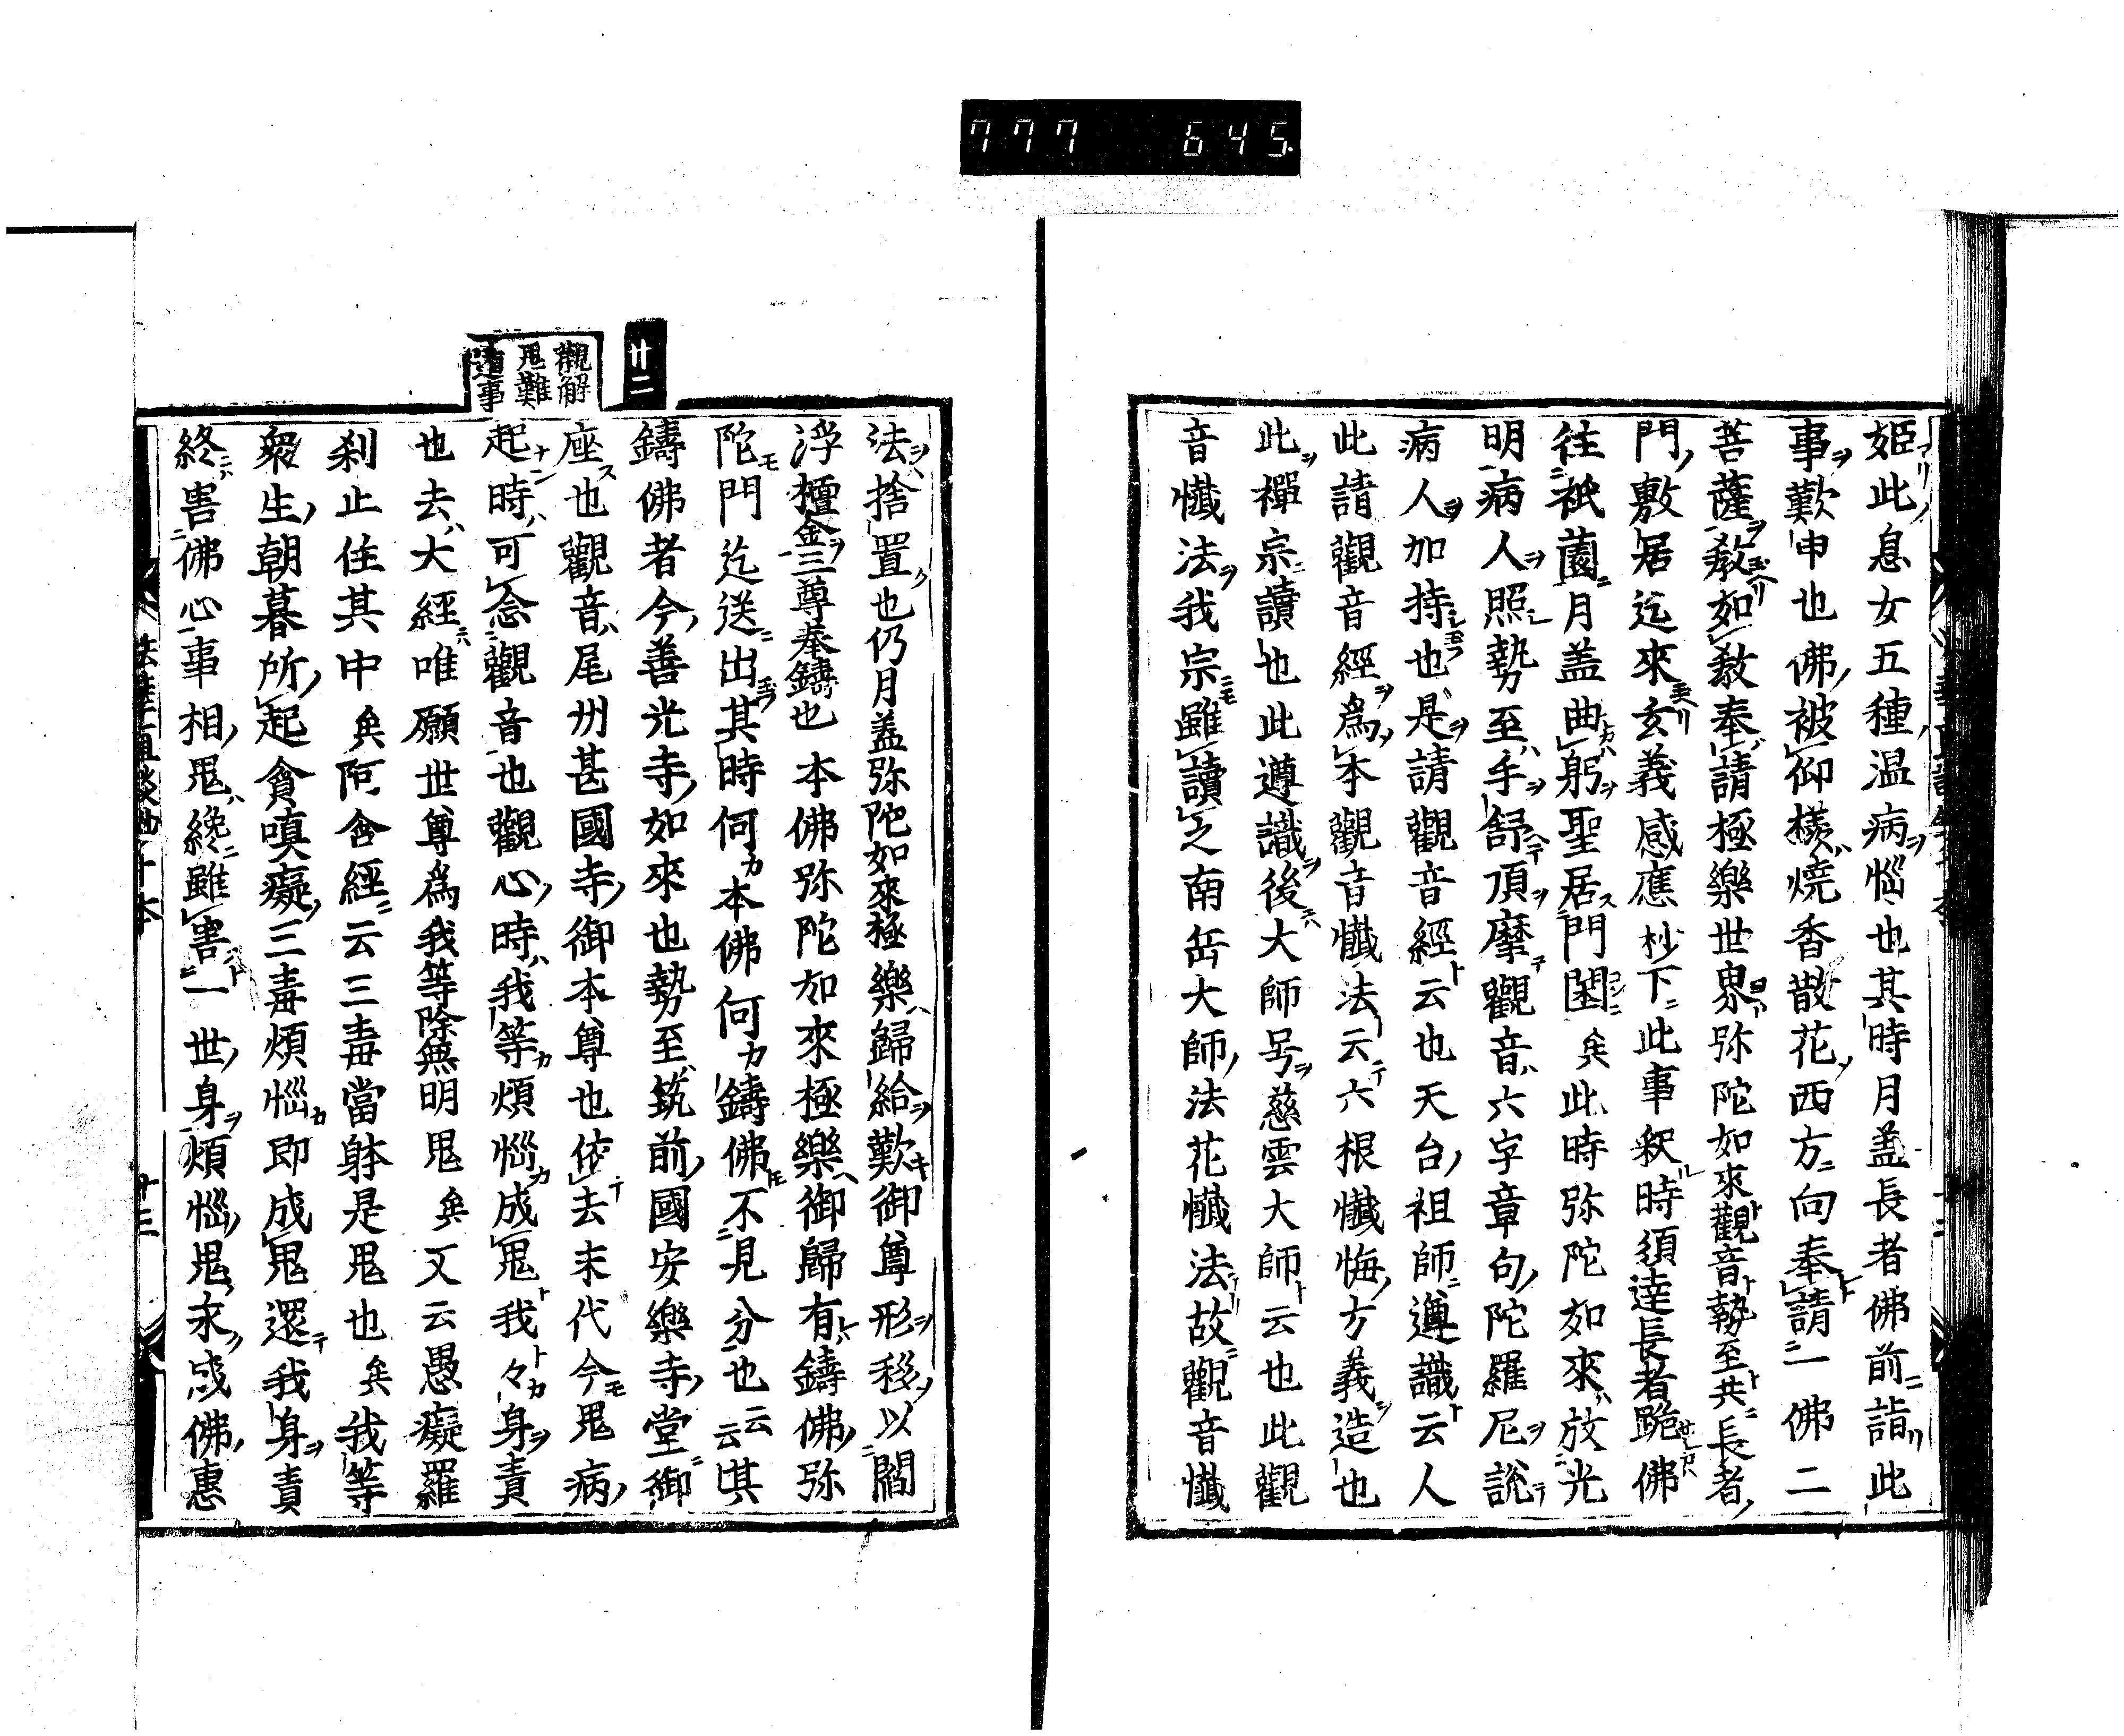 777 645.
姫此息女五種温病惱也其時月盖長者佛前詣此
事歎申也佛被仰樣燒香散花西方向奉請一佛二
菩薩教如教奉請極樂世界弥陀如來觀音勢至共長者
門敷居迄來玄義感應抄下此事釈時須達長者跪佛
往祇薗月盖曲躬聖居門閫矣此時弥陀如來放光
明病人照勢至手舒頂摩觀音六字章句陀羅尼說
病人加持也是請觀音經云也天台祖師遵識云人
此請觀音經為本觀音懺法云六根懺悔方義造也
此禪宗讀也此遵識後大師号慈雲大師云也此觀
音懺法我宗雖讀之南岳大師法花懺法故觀音懺
法捨置也仍月盖弥陀如來極樂歸給歎御尊形移以閻
浮檀金三尊奉鑄也本佛弥陀如來極樂御歸有鑄佛弥
陀門迄送出其時何本佛何鑄佛不見分也云云其
鑄佛者今善光寺如來也勢至筑前國安樂寺堂御
座也觀音尾州甚國寺御本尊也依去末代今鬼病
廿二
觀解鬼難遁事
起時可念觀音也觀心時我等煩惱成鬼我々身責
也去大經唯願世尊為我等除無明鬼矣又云愚癡羅
刹止住其中矣阿含經云三毒當躰是鬼也矣我等
衆生朝暮所起貪嗔癡三毒煩惱即成鬼還我身責
終害佛心事相鬼纔雖害一世身煩惱鬼永成佛惠